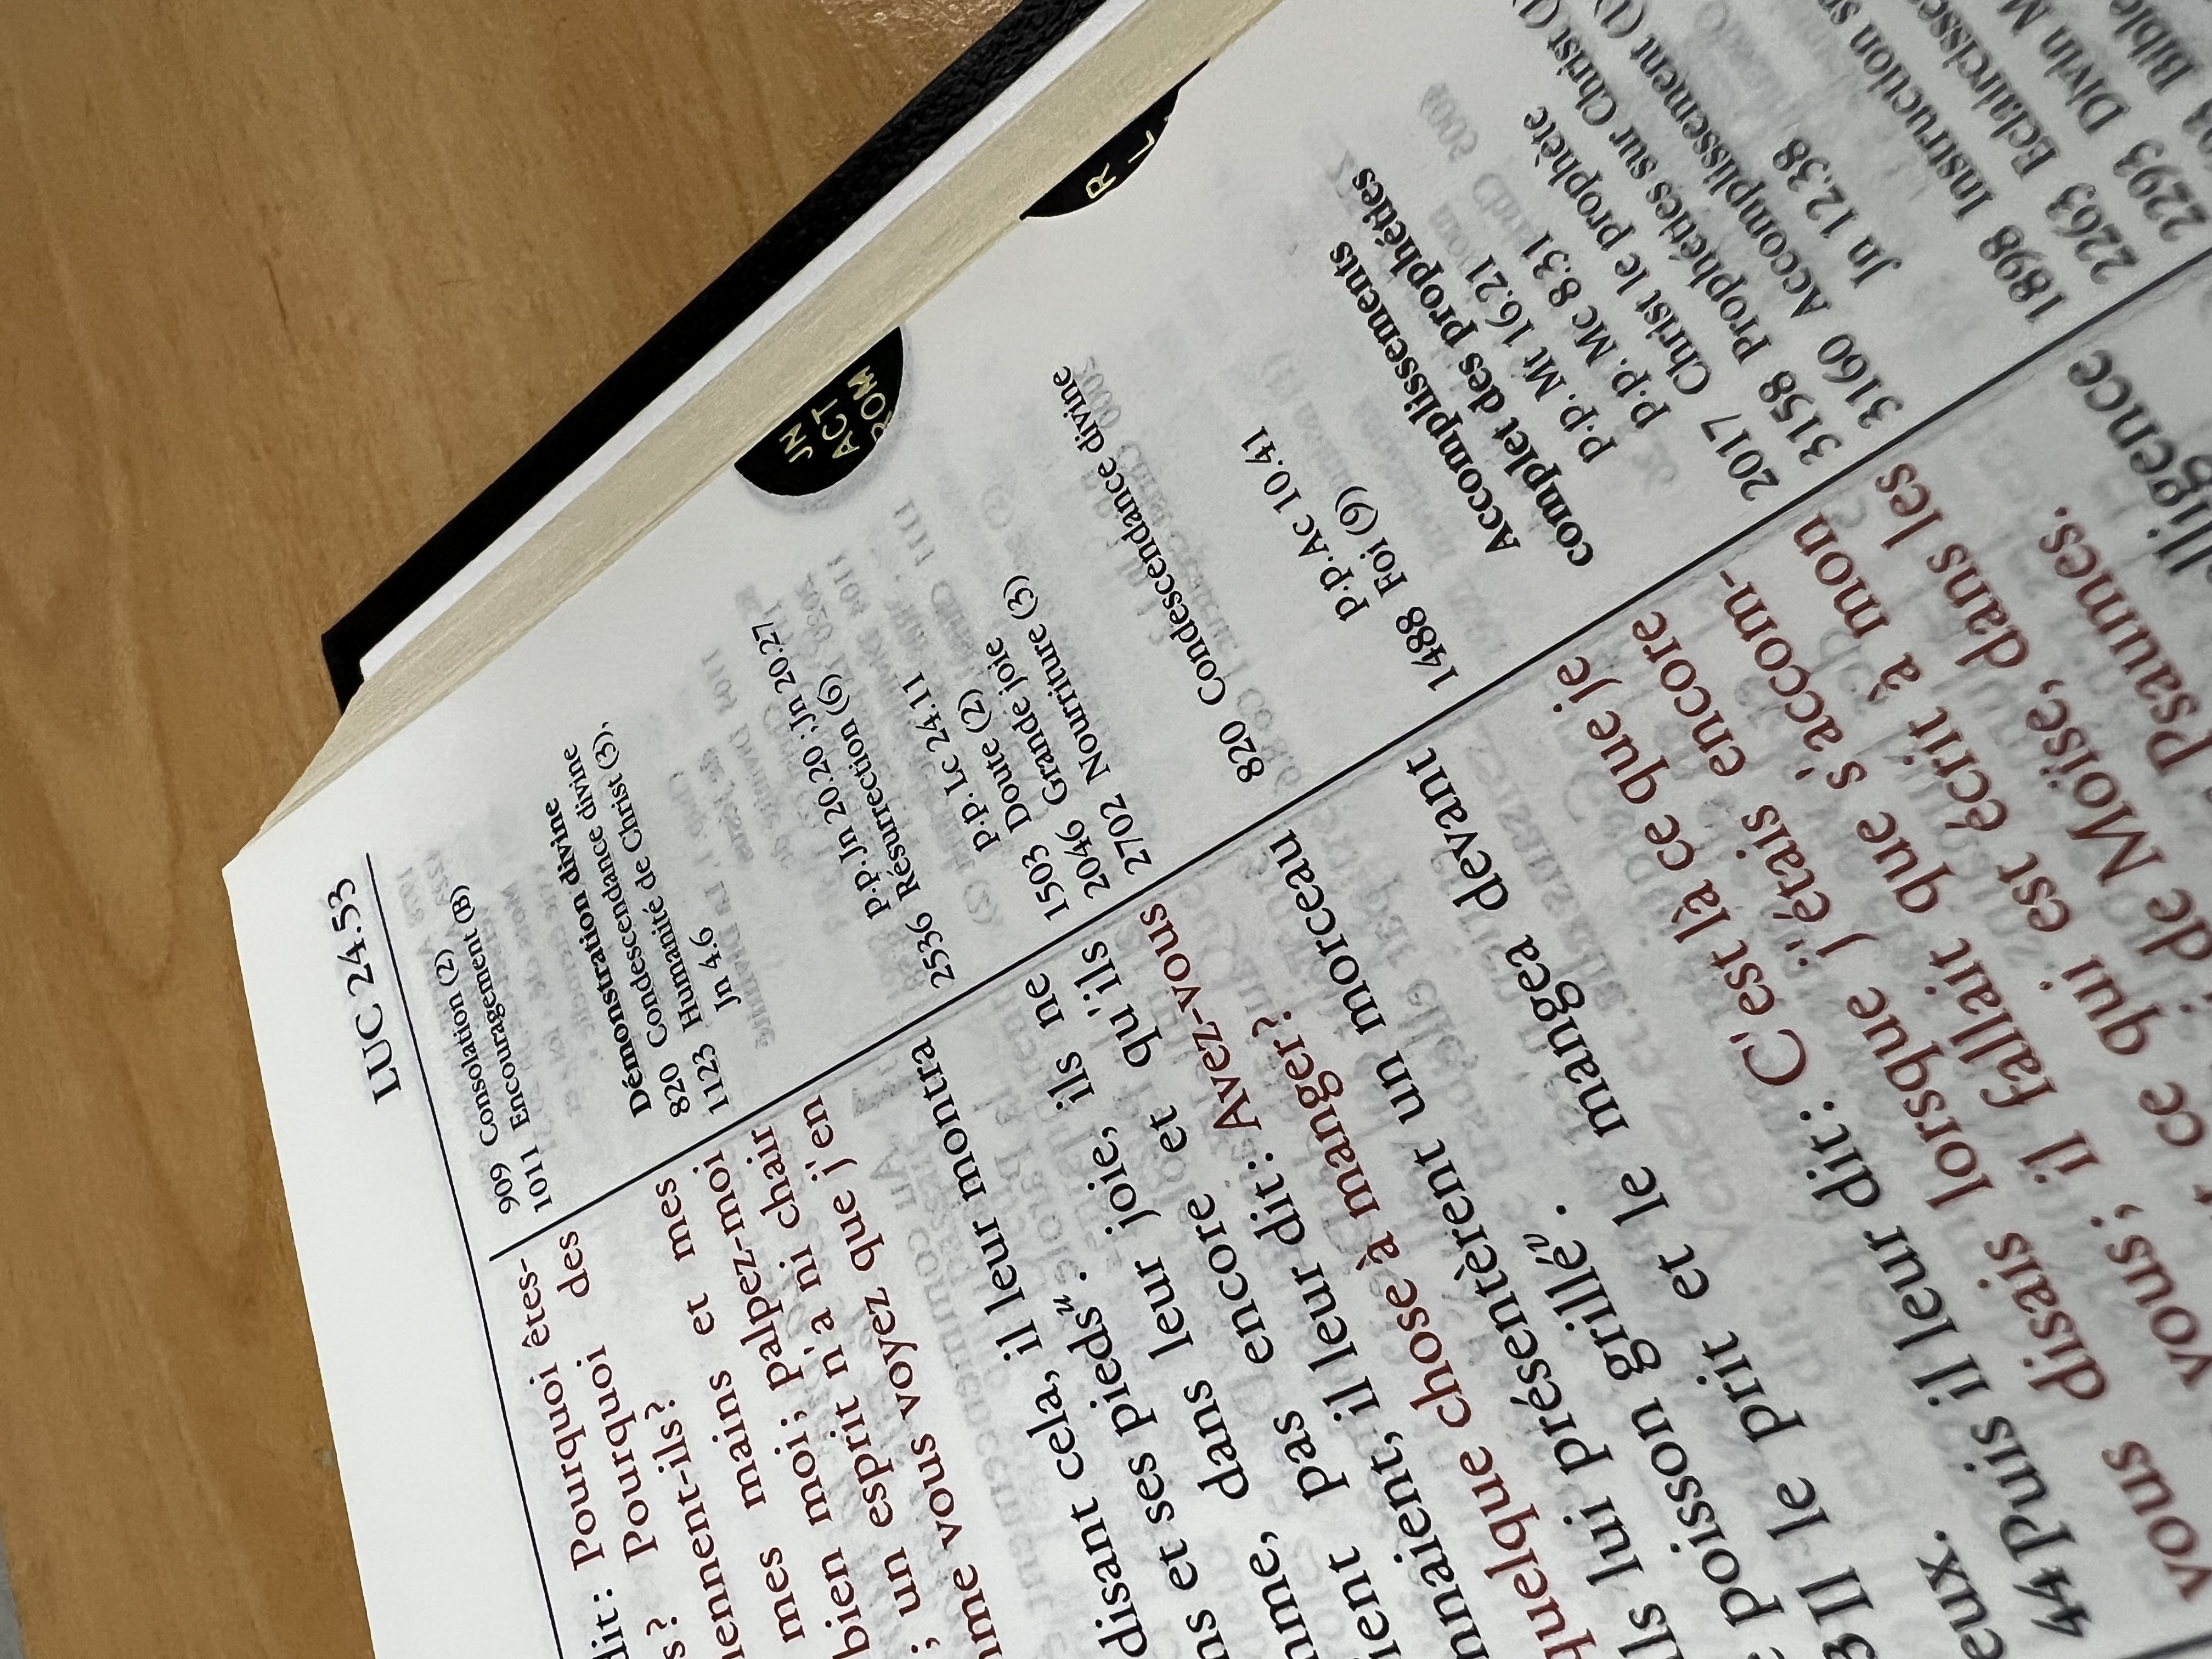 LUC 24.53
dit: Pourquoi êtes-
s? Pourquoi des
iennent-ils?
mes mains et mes
bien moi; palpez-moi
; un esprit n'a ni chair
mme vous voyez que j'en
disant cela, il leur montra
ns et ses pieds u.
mme, dans leur joie, ils ne
ient pas encore et qu'ils
nnaient, il leur dit: Avez-vous
quelque chose à manger?
ils lui présentèrent un morceau
poisson grillé v.
3 Il le prit et le mangea devant
eux.
44 Puis il leur dit: C'est là ce que je
vous disais lorsque j'étais encore
vous; il fallait que s'accom-
ce qui est écrit à mon
de Moïse, dans les
Psaumes.
lligence
909 Consolation (2)
1011 Encouragement (B)
Démonstration divine
820 Condescendance divine
1123 Humanité de Christ (3),
Jn 4.6
p.p. Jn 20.20 ; Jn 20.27
2536 Résurrection (6)
p.p. Lc 24.11
1503 Doute (2)
2046 Grande joie
2702 Nourriture (3)
820 Condescendance divine
p.p. Ac 10.41
1488 Foi (9)
Accomplissements
complet des prophéties
p.p. Mt 16.21
p.p. Mc 8.31
2017 Christ le prophète
3158 Prophéties sur Christ (1
3160 Accomplissement (1)
Jn 12.38
1898 Instruction
2263 Eclaircisse
2293 Divin M
Bible
JN
ACT
ROM
R
L